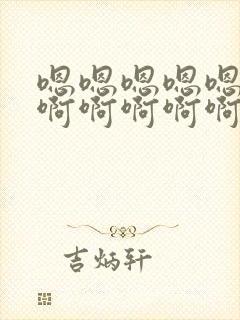 嗯嗯嗯嗯嗯
啊啊啊啊啊
吉炳轩